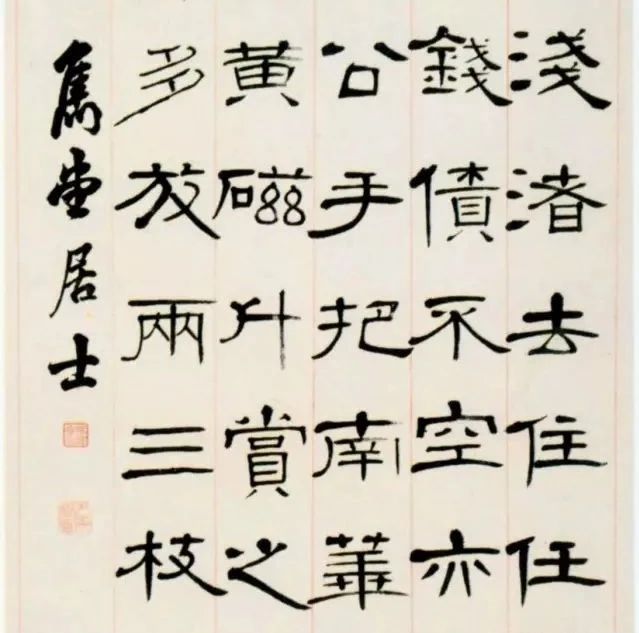 淺渚去住任
錢債不空亦
公手把南華
黃磁升賞之
多放兩三枝
居士